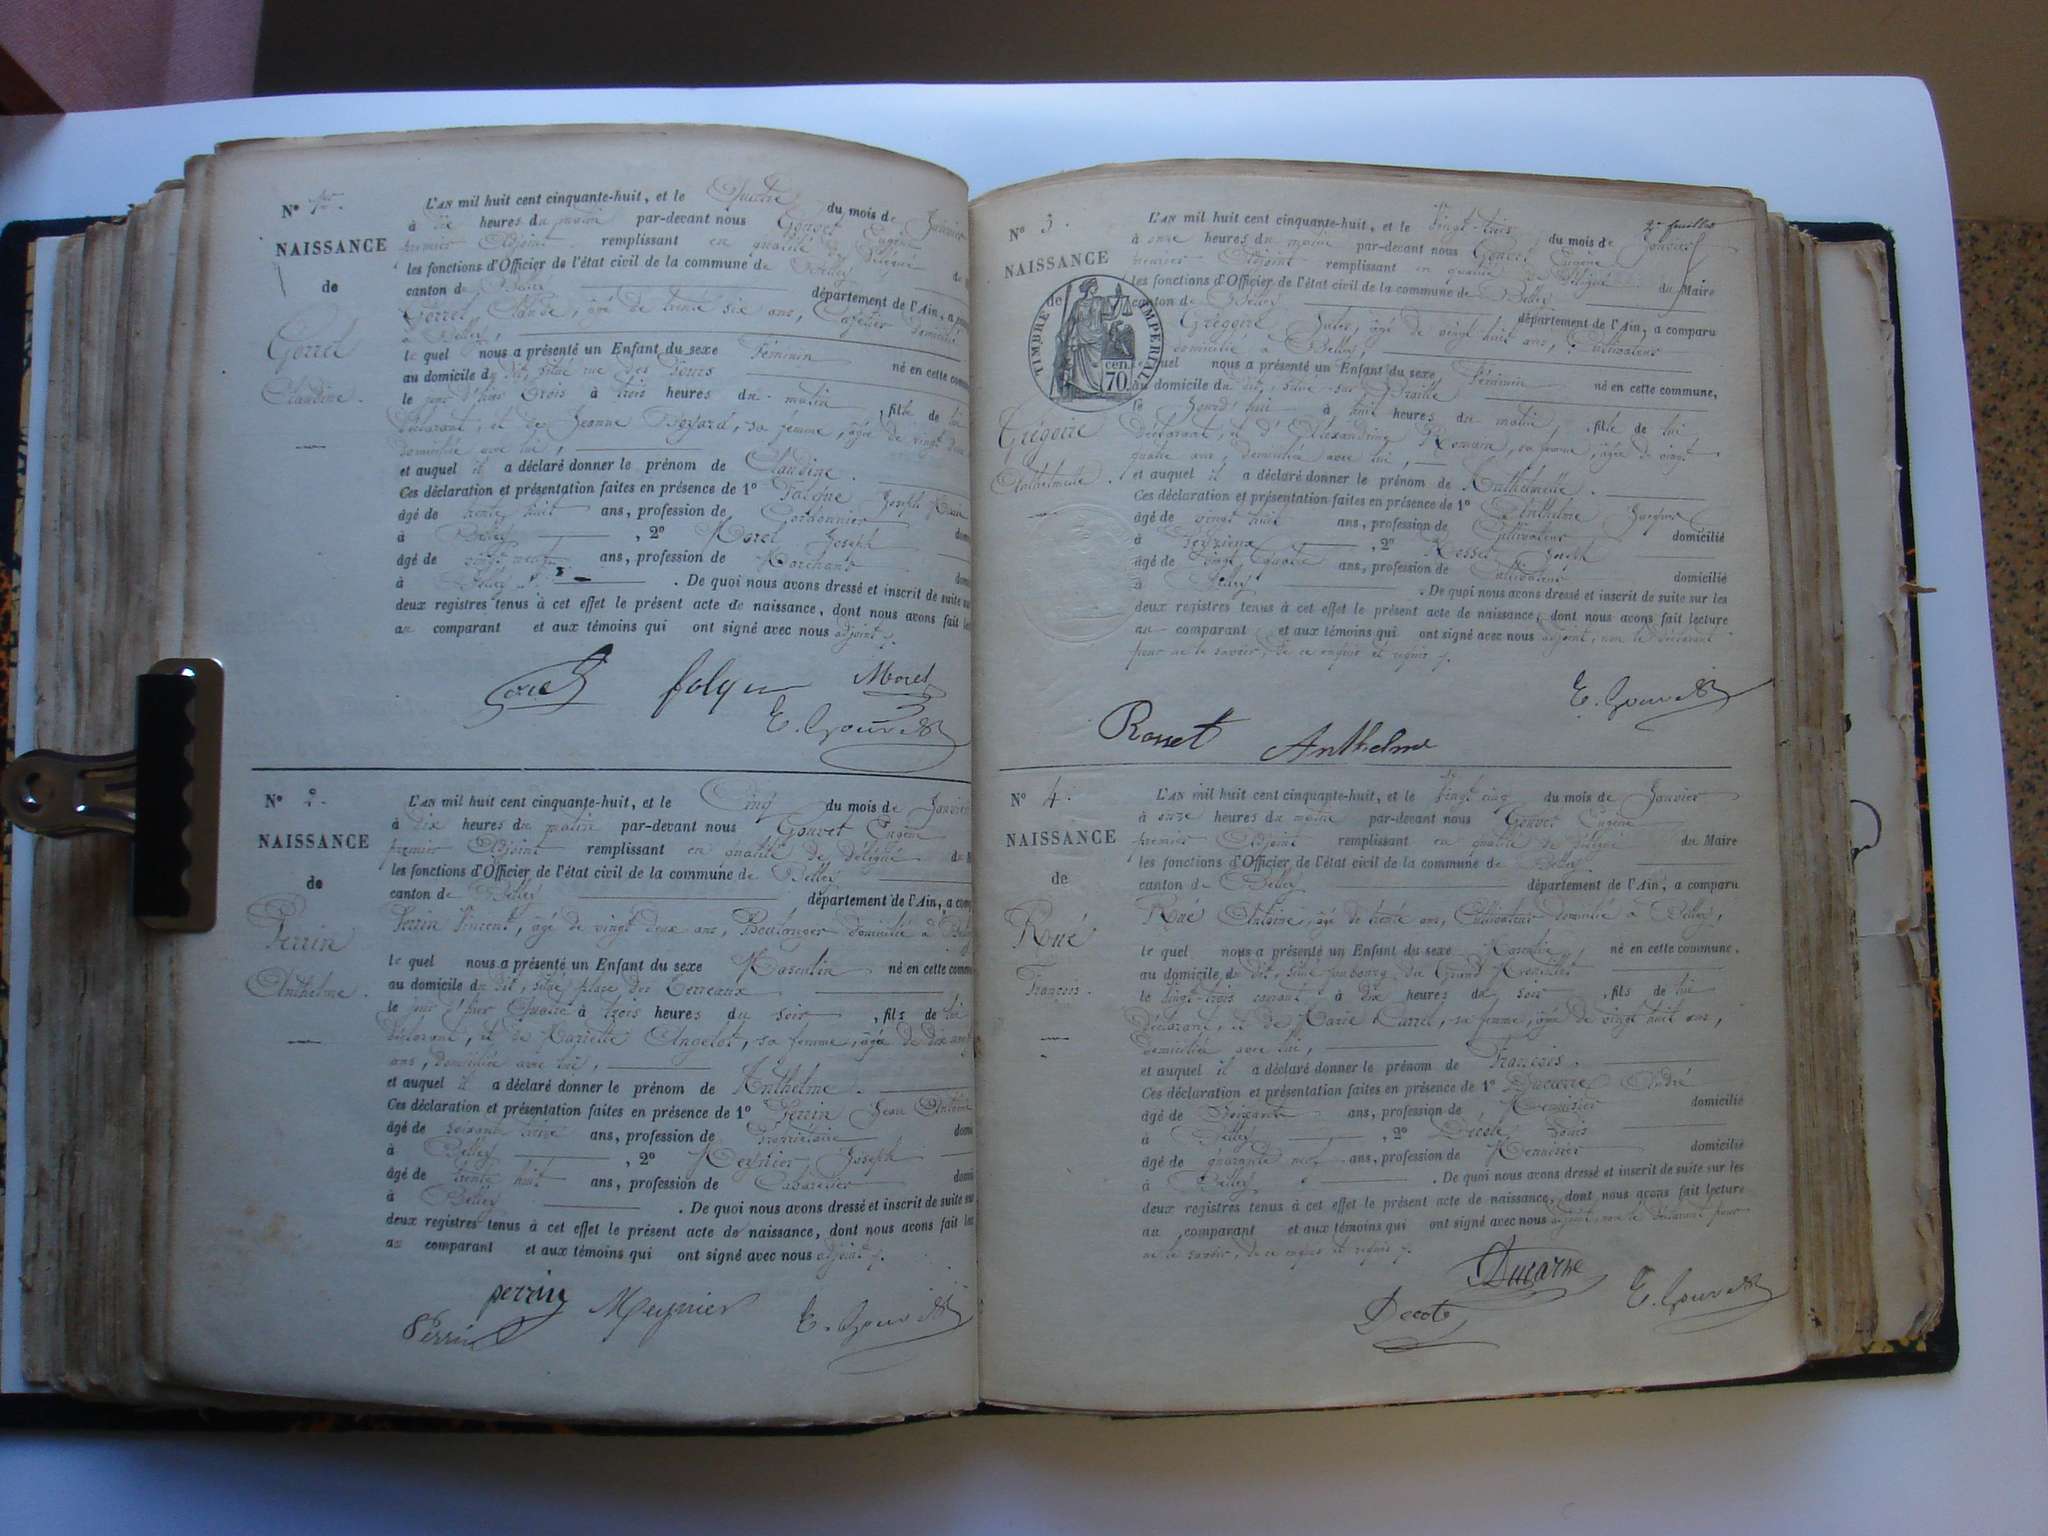 N° 1er.
NAISSANCE
de
Gorrel
Claudine.
L'AN mil huit cent cinquante-huit, et le Quatre du mois de Janvier
à dix heures du matin par-devant nous Gouvet Eugène
premier Adjoint remplissant en qualité de Délégué
les fonctions d'Officier de l'état civil de la commune de Belley
canton de Belley département de l'Ain, a
Gorrel Claude, âgé de trente six ans, domicilié
à Belley,
le quel nous a présenté un Enfant du sexe Féminin né en cette
au domicile du dit, situé rue des
le jour d'hier trois à trois heures du matin, fille de lui
déclarant, et de Jeanne sa femme, âgée de vingt
domiciliée avec lui,
et auquel il a déclaré donner le prénom de Claudine.
Ces déclaration et présentation faites en présence de 1° Falque Joseph
âgé de trente huit ans, profession de Cordonnier
à Belley, 2° Morel Joseph
âgé de vingt neuf ans, profession de Marchand
à Belley. De quoi nous avons dressé et inscrit de suite
deux registres tenus à cet effet le présent acte de naissance, dont nous avons fait
au comparant et aux témoins qui ont signé avec nous adjoint
Morel
E. Gouvet
N° 2.
NAISSANCE
de
Perrin
Anthelme.
L'AN mil huit cent cinquante-huit, et le Cinq du mois de Janvier
à dix heures du matin par-devant nous Gouvet Eugène
premier Adjoint remplissant en qualité de délégué
les fonctions d'Officier de l'état civil de la commune de Belley
canton de Belley département de l'Ain, a
Perrin Vincent, âgé de vingt deux ans, Boulanger domicilié à
le quel nous a présenté un Enfant du sexe Masculin né en cette
au domicile du dit, situé place des Terreaux
le jour d'hier Quatre à trois heures du soir, fils de lui
déclarant, et de Mariette Angelot, sa femme, âgée de dix
ans, domiciliée avec lui,
et auquel il a déclaré donner le prénom de Anthelme.
Ces déclaration et présentation faites en présence de 1° Perrin Jean Antoine
âgé de soixante treize ans, profession de Propriétaire
à Belley, 2° Meynier Joseph
âgé de trente huit ans, profession de Cabaretier
à Belley. De quoi nous avons dressé et inscrit de suite
deux registres tenus à cet effet le présent acte de naissance, dont nous avons fait
au comparant et aux témoins qui ont signé avec nous adjoint
perrin Meynier
Perrin E. Gouvet
2e feuillet
N° 3.
NAISSANCE
de
TIMBRE IMPÉRIAL
cen.
70
Grégoire
Anthelmette.
L'AN mil huit cent cinquante-huit, et le Vingt trois du mois de Janvier
à onze heures du matin par-devant nous Gouvet Eugène
premier Adjoint remplissant en qualité de Délégué du Maire
les fonctions d'Officier de l'état civil de la commune de Belley
canton de Belley département de l'Ain, a comparu
Grégoire âgé de vingt huit ans, Cultivateur
domicilié à Belley,
le quel nous a présenté un Enfant du sexe Féminin né en cette commune,
au domicile du dit, situé sur
le jourd'hui à huit heures du matin, fille de lui
déclarant, et d'Alexandrine Romain, sa femme, âgée de vingt
quatre ans, domiciliée avec lui,
et auquel il a déclaré donner le prénom de Anthelmette.
Ces déclaration et présentation faites en présence de 1° Anthelme Jacques
âgé de vingt huit ans, profession de Cultivateur domicilié
à 2° Rosset Joseph
âgé de vingt quatre ans, profession de Cultivateur domicilié
à Belley. De quoi nous avons dressé et inscrit de suite sur les
deux registres tenus à cet effet le présent acte de naissance, dont nous avons fait lecture
au comparant et aux témoins qui ont signé avec nous adjoint, non le déclarant
pour ne le savoir, de ce enquis et requis
E. Gouvet
Rosset Anthelme
N° 4.
NAISSANCE
de
Rué
François.
L'AN mil huit cent cinquante-huit, et le Vingt cinq du mois de Janvier
à onze heures du matin par-devant nous Gouvet Eugène
premier Adjoint remplissant en qualité de délégué du Maire
les fonctions d'Officier de l'état civil de la commune de Belley
canton de Belley département de l'Ain, a comparu
Rué Antoine, âgé de trente ans, Cultivateur domicilié à Belley,
le quel nous a présenté un Enfant du sexe Masculin, né en cette commune.
au domicile du dit, situé faubourg du Grand
le Vingt-trois courant à dix heures du soir, fils de lui
déclarant, et de Marie sa femme, âgée de vingt huit ans,
domiciliée avec lui,
et auquel il a déclaré donner le prénom de François.
Ces déclaration et présentation faites en présence de 1° Ducarre André
âgé de Soixante ans, profession de Menuisier domicilié
à Belley, 2° Décote Louis
âgé de quarante neuf ans, profession de Menuisier domicilié
à Belley. De quoi nous avons dressé et inscrit de suite sur les
deux registres tenus à cet effet le présent acte de naissance, dont nous avons fait lecture
au comparant et aux témoins qui ont signé avec nous adjoint, non le déclarant pour
ne le savoir, de ce enquis et requis
Ducarre
Decote E. Gouvet